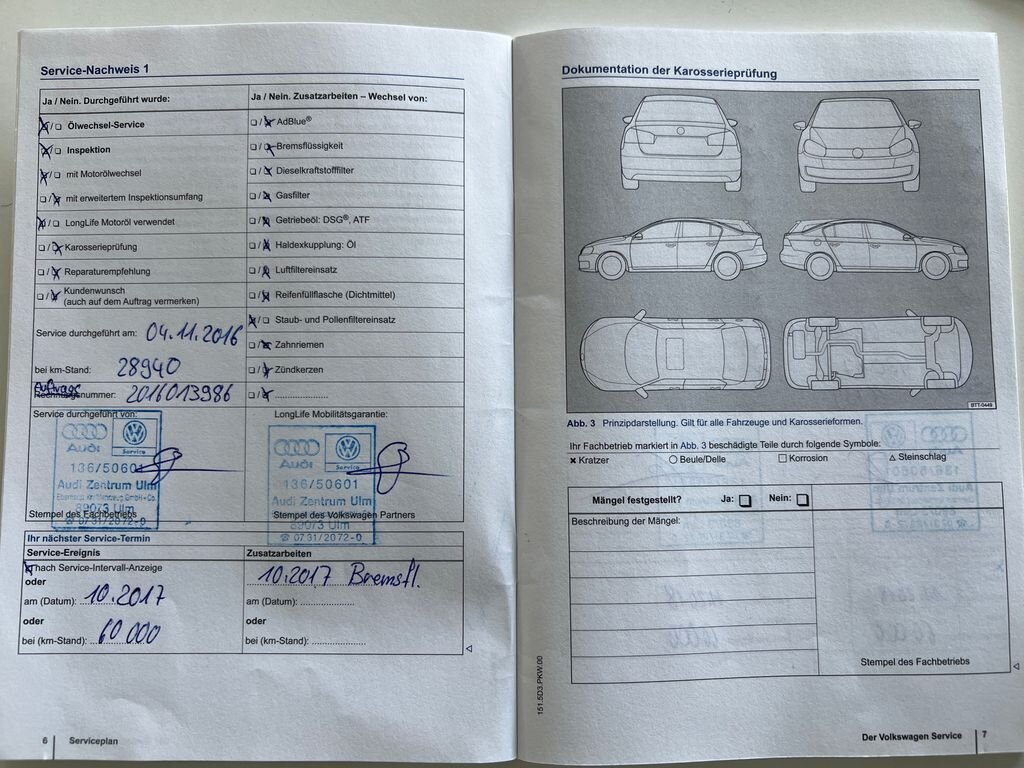 Service-Nachweis 1
Ja / Nein. Durchgeführt wurde:
Ölwechsel-Service
Inspektion
mit Motorölwechsel
mit erweitertem Inspektionsumfang
LongLife Motoröl verwendet
Karosserieprüfung
Reparaturempfehlung
Kundenwunsch
(auch auf dem Auftrag vermerken)
Service durchgeführt am: 04.11.2016
bei km-Stand: 28940
Auftrags
Rechnungsnummer: 2016013986
Ja / Nein. Zusatzarbeiten – Wechsel von:
AdBlue®
Bremsflüssigkeit
Dieselkraftstofffilter
Gasfilter
Getriebeöl: DSG®, ATF
Haldexkupplung: Öl
Luftfiltereinsatz
Reifenfüllflasche (Dichtmittel)
Staub- und Pollenfiltereinsatz
Zahnriemen
Zündkerzen
Service durchgeführt von:
Audi
Service
136/50601
Audi Zentrum Ulm
89073 Ulm
☎ 0731/2072-0
Stempel des Fachbetriebs
LongLife Mobilitätsgarantie:
Audi
Service
136/50601
Audi Zentrum Ulm
Stempel des Volkswagen Partners
89073 Ulm
☎ 0731/2072-0
Ihr nächster Service-Termin
Service-Ereignis
nach Service-Intervall-Anzeige
oder
am (Datum): 10.2017
oder
bei (km-Stand): 60 000
Zusatzarbeiten
10.2017 Bremsfl.
am (Datum): ....................
oder
bei (km-Stand): ....................
6 Serviceplan
Dokumentation der Karosserieprüfung
BTT-0449
Abb. 3 Prinzipdarstellung. Gilt für alle Fahrzeuge und Karosserieformen.
Ihr Fachbetrieb markiert in Abb. 3 beschädigte Teile durch folgende Symbole:
× Kratzer ○ Beule/Delle □ Korrosion △ Steinschlag
Mängel festgestellt? Ja: □ Nein: □
Beschreibung der Mängel:
Stempel des Fachbetriebs
151.5D3.PKW.00
Der Volkswagen Service 7